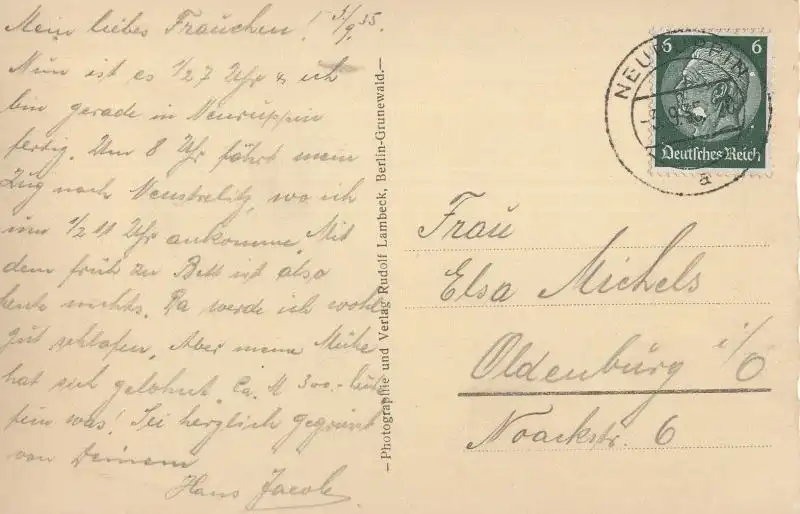 Mein liebes Frauchen! 3/9.35.
Nun ist es 1/2 7 Uhr & ich
bin gerade in Neuruppin
fertig. Um 8 Uhr fährt mein
Zug nach Neustrelitz, wo ich
um 1/2 11 Uhr ankomme. Mit
dem früh zu Bett ist also
heute nichts. Da werde ich wohl
gut schlafen. Aber meine Mühe
hat sich gelohnt. Ca. M 300.-
fein was! Sei herzlich gegrüsst
von Deinem
Hans Jacob
-Photographie und Verlag Rudolf Lambeck, Berlin-Grunewald.-
NEURUPPIN
a
6 6
Deutsches Reich
Frau
Elsa Michels
Oldenbürg i/O
Noackstr. 6